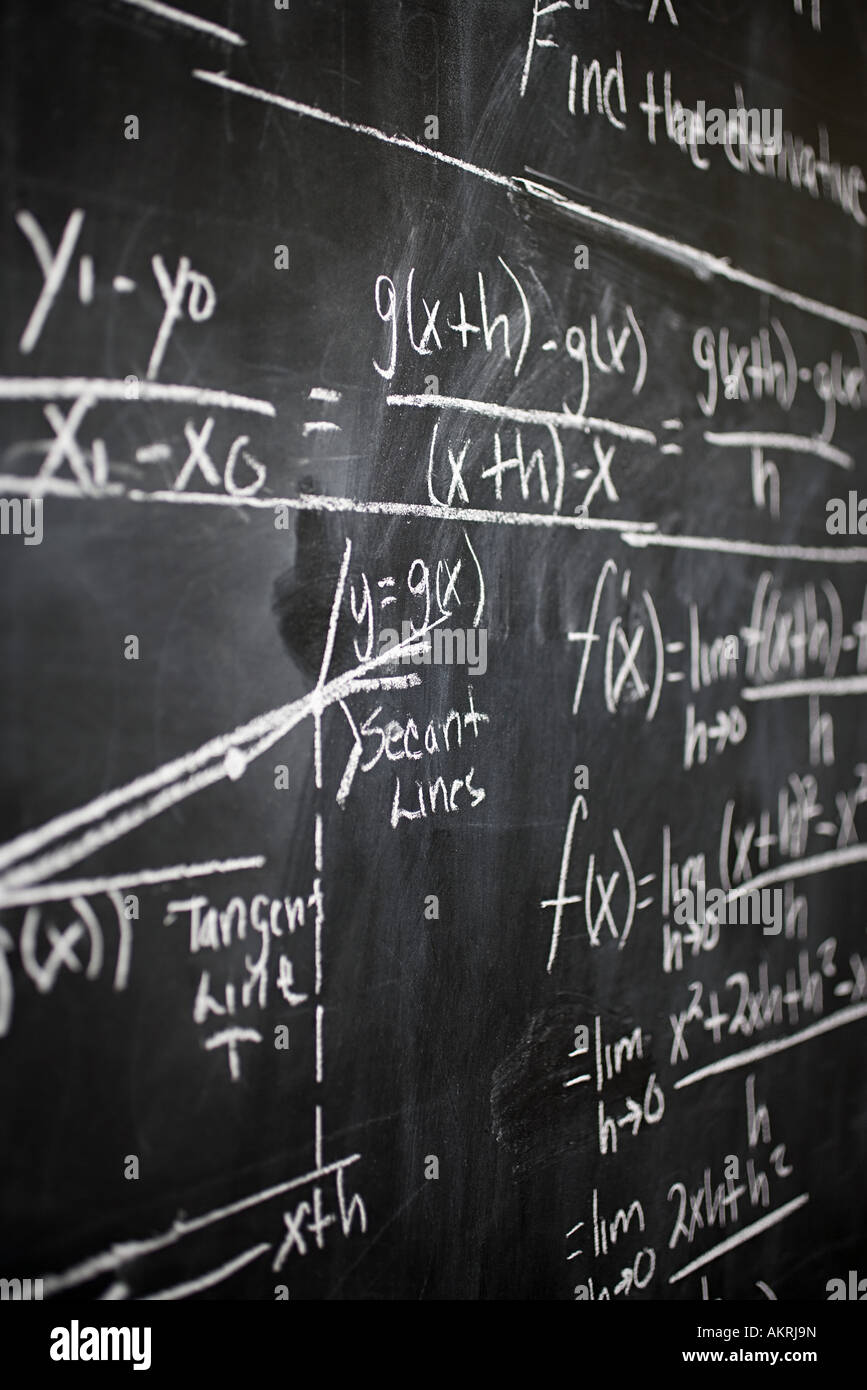 Find the derivative
y1 - y0 / x1 - x0 = g(x+h) - g(x) / (x+h) - x = g(x+h) - g(x / h
y = g(x)
Secant
Lines
g(x))
Tangent
Line
T
x+h
f'(x) = lim h→0 f(x+h) - / h
f(x) = lim h→0 (x+h)² - x² / h
= lim h→0 x² + 2xh + h² - x / h
= lim h→0 2xh + h²
alamy
Image ID: AKRJ9N
www.alamy.com